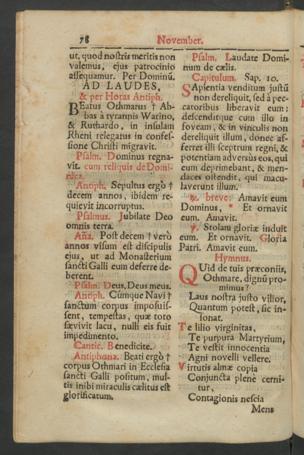 78
November.
ut, quod nostris meritis non
valemus, ejus patrocinio
assequamur. Per Dominũ.
AD LAUDES,
& per Horas Antiph.
BEatus Othmarus † Ab-
bas à tyrannis Warino,
& Ruthardo, in insulam
Rheni relegatus in confes-
sione Christi migravit.
Psalm. Dominus regna-
vit. cum reliquis de Domi-
nica.
Antiph. Sepultus ergò †
decem annos, ibidem re-
quievit incorruptus.
Psalmus. Jubilate Deo
omnis terra.
Aña. Post decem † verò
annos visum est discipulis
ejus, ut ad Monasterium
sancti Galli eum deferre de-
berent.
Psalm. Deus, Deus meus.
Antiph. Cùmque Navi †
sanctum corpus imposuis-
sent, tempestas, quæ toto
sævivit lacu, nulli eis fuit
impedimento.
Cantic. Benedicite.
Antiphona. Beati ergò †
corpus Othmari in Ecclesia
sancti Galli positum, mul-
tis inibi miraculis cælitus est
glorificatum.
Psalm. Laudate Domi-
num de cælis.
Capitulum. Sap. 10.
SApientia venditum justũ
non dereliquit, sed à pec-
catoribus liberavit eum:
descenditque cum illo in
foveam, & in vinculis non
dereliquit illum, donec af-
ferret illi sceptrum regni, &
potentiam adversùs eos, qui
eum deprimebant, & men-
daces ostendit, qui macu-
laverunt illum.
℟. breve: Amavit eum
Dominus, * Et ornavit
eum. Amavit.
℣. Stolam gloriæ induit
eum. Et ornavit. Gloria
Patri. Amavit eum.
Hymnus.
QUid de tuis præconiis,
Othmare, dignū pro-
mimus?
Laus nostra justo vilior,
Quantum potest, sic in-
sonat.
Te lilio virginitas,
Te purpura Martyrium,
Te vestit innocentia
Agni novelli vellere.
Virtutis almæ copia
Conjuncta plenè cerni-
tur,
Contagionis nescia
Mens